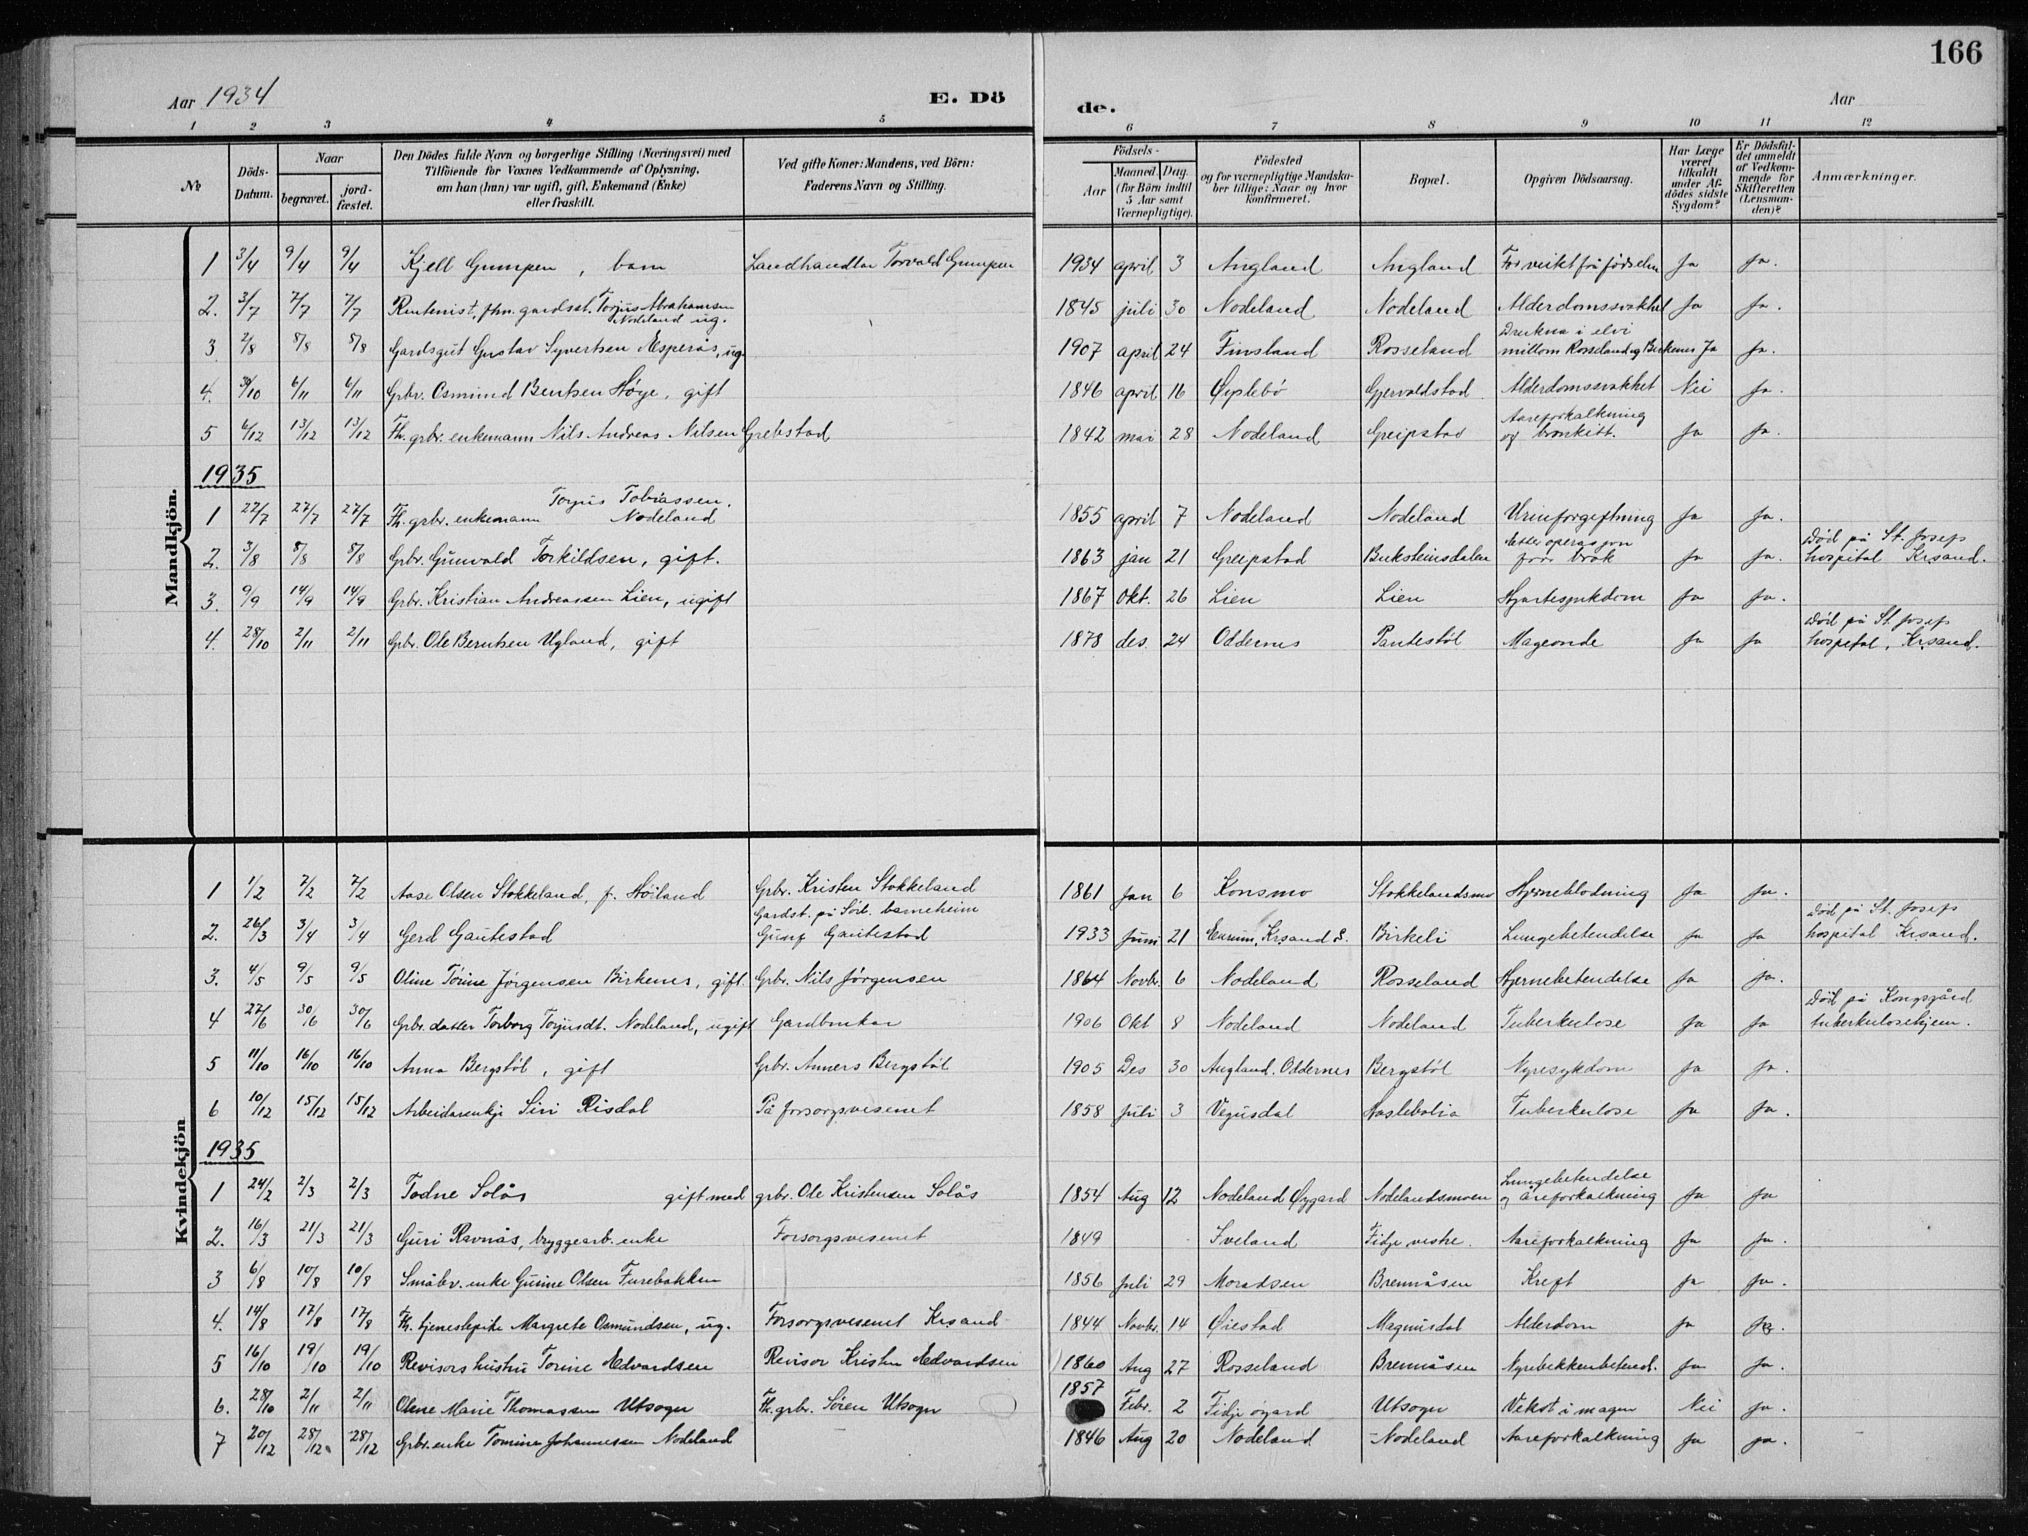 166
Aar 1934 E. Dö de. Aar
1 2 3 4 5 6 7 8 9 10 11 12
№ Döds-Datum. Naar begravet. jord-fæstet. Den Dödes fulde Navn og borgerlige Stilling (Næringsvei) med Tilföiende for Voxnes Vedkommende af Oplysning, om han (hun) var ugift, gift, Enkemand (Enke) eller fraskilt. Ved gifte Koner: Mandens, ved Börn: Faderens Navn og Stilling. Födsels- Aar Maaned. Dag. (for Börn indtil 5 Aar samt Værnepligtige). Födested og for værnepligtige Mandskaber tillige: Naar og hvor konfirmeret. Bopæl. Opgiven Dödsaarsag. Har Læge været tilkaldt under Afdödes sidste Sygdom? Er Dödsfaldet anmeldt af Vedkommende for Skifteretten (Lensmanden)? Anmærkninger.
Mandkjön.
1 3/4 9/4 9/4 Kjell Gumpen, barn Landhandlar Torvald Gumpen 1934 april 3 Augland Augland For veikt frå fødselen Ja ja.
2. 3/7 7/7 7/7 Rentenist, fhn. gardsst. Torjus Abrahamsen Nodeland ug. 1845 juli 30 Nodeland Nodeland Alderdomssvakhet Ja ja.
3 2/8 8/8 8/8 Gardsgut Gustav Syvertsen Aesperås, ug. 1907 april 24 Finsland Rosseland Drukna i elvi millom Rosseland og Birkenes Ja ja.
4. 30/10 6/11 6/11 Grbr. Osmund Bentsen Høye, gift 1846 april 16 Øyslebö Gjervoldstad Alderdomssvakhet Nei ja.
5 6/12 13/12 13/12 Fh. grbr. enkemann Nils Andreas Nilsen Grebstad 1842 mai 28 Nodeland Greipstad Aareforkalkning og bronkitt. Ja ja.
1935
1 22/7 27/7 27/7 Fh. grbr. enkemann Torjus Tobiassen Nodeland 1855 april 7 Nodeland Nodeland Urinforgiftning ja ja.
2. 3/8 8/8 8/8 Grbr. Gunvald Torkildsen, gift. 1863 jan 21 Greipstad Buksteinsdalen Etter operasjon for brok ja ja. Död på St. Josefs hospital Krsand.
3. 9/9 14/9 14/9 Grbr. Kristian Andreassen Lien, ugift 1867 Okt. 26 Lien Lien Hjartesjukdom ja ja.
4. 28/10 2/11 2/11 Grbr. Ole Berntsen Ugland, gift 1878 des. 24 Oddernes Pantestøl Mageonde ja ja Död på St. Josefs hospital, Krsand.
Kvindekjön
1 1/2 7/2 7/2 Aase Olsen Stokkeland, f. Høiland Grbr. Kristen Stokkeland 1861 Jan 6 Konsmo Stokkelandsmo Hjerneblødning ja ja.
2. 26/3 3/4 3/4 Gerd Gautestad Gardst. på Sörl. barneheim Gunf Gautestad 1933 Juni 21 Krsand S. Birkeli Lungebetendelse ja ja Död på St. Josefs hospital Krsand.
3. 4/5 9/5 9/5 Oline Tórine Jörgensen Birkenes, gift. Grbr. Nils Jörgensen 1864 Novbr. 6 Nodeland Rosseland Hjernebetendelse ja ja.
4 27/6 30/6 30/6 Grbr. datter Torborg Torjusdt. Nodeland, ugift Gardbrukar 1906 Okt 8 Nodeland Nodeland Tuberkulose ja ja Död på Kongsgård tuberkulosehjem.
5 11/10 16/10 16/10 Anna Bergstöl, gift Grbr. Anners Bergstöl 1905 Des 30 Augland. Oddernes Bergstöl Nyresykdom ja ja.
6 10/12 15/12 15/12 Arbeidarenkje Siri Risdal På forsorgsvesenet 1858 Juli 3 Vegusdal Haslebalia Tuberkulose ja ja.
1935
1 24/2 2/3 2/3 Todne Solås gift med grbr. Ole Kristensen Solås 1854 Aug 12 Nodeland Øygard Nodelandsmoen Lungebetendelse og åreforkalkning ja ja
2. 16/3 21/3 21/3 Guri Ravnås, bryggearb. enke Forsorgsvesenet 1849 Iveland Fidje vestre. Aareforkalkning ja ja.
3 6/8 10/8 10/8 Småbr. enke Gunne Olsen Furebakken 1856 Juli 29 Moradsen Brennåsen Kreft ja ja.
4. 14/8 17/8 17/8 Fh. tjenestepike Margrete Osmundsen, ug. Forsorgsvesenet Krsand 1844 Novbr. 14 Øiestad Magnusdal Alderdom ja ja.
5 16/10 19/10 19/10 Revisors hustru Torine Edvardsen Revisor Kristen Edvardsen 1860 Aug 27 Rosseland Brennåsen Nyrebekkenbetend. ja ja.
6. 28/10 2/11 2/11 Olene Marie Thomassen Utsogn Fh. grbr. Sören Utsogn 1857 Febr. 2 Fidje øgard Utsogn Vekst i magen Nei ja.
7 20/12 28/12 28/12 Grbr. enke Tomine Johannessen Nodeland 1846 Aug 20 Nodeland Nodeland Aareforkalkning ja ja.